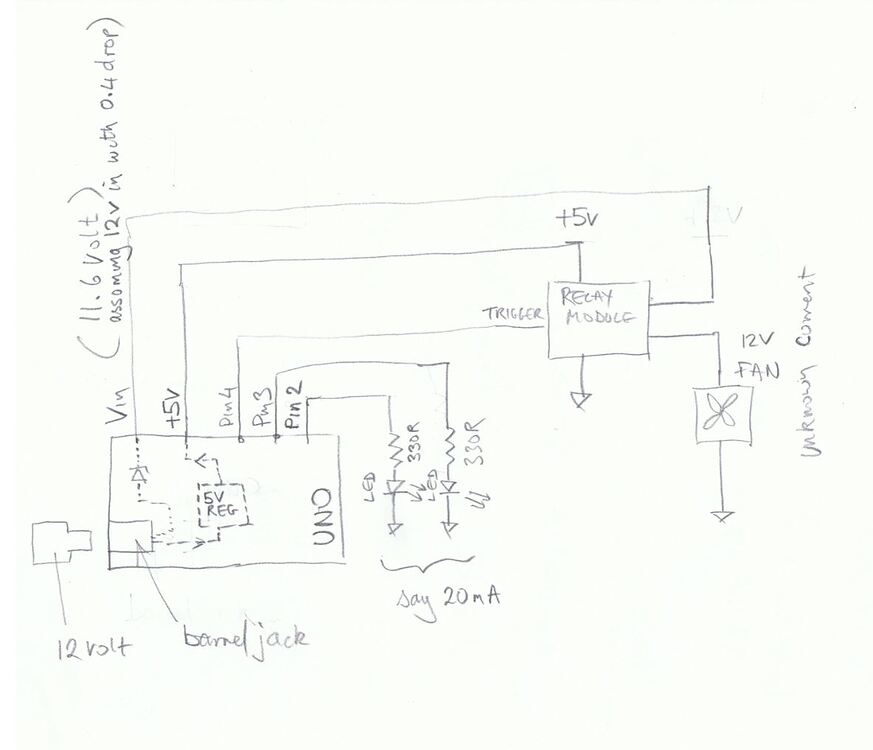 ( 11.6 volt )
assoming 12v in with 0.4 drop)
+5v
TRIGGER
RELAY
MODULE
12V
FAN
Unknown
Vin
+5V
Pin4
Pin3
Pin2
330R
330R
LED
LED
5V
REG
UNO
say 20mA
12 volt
barrel jack